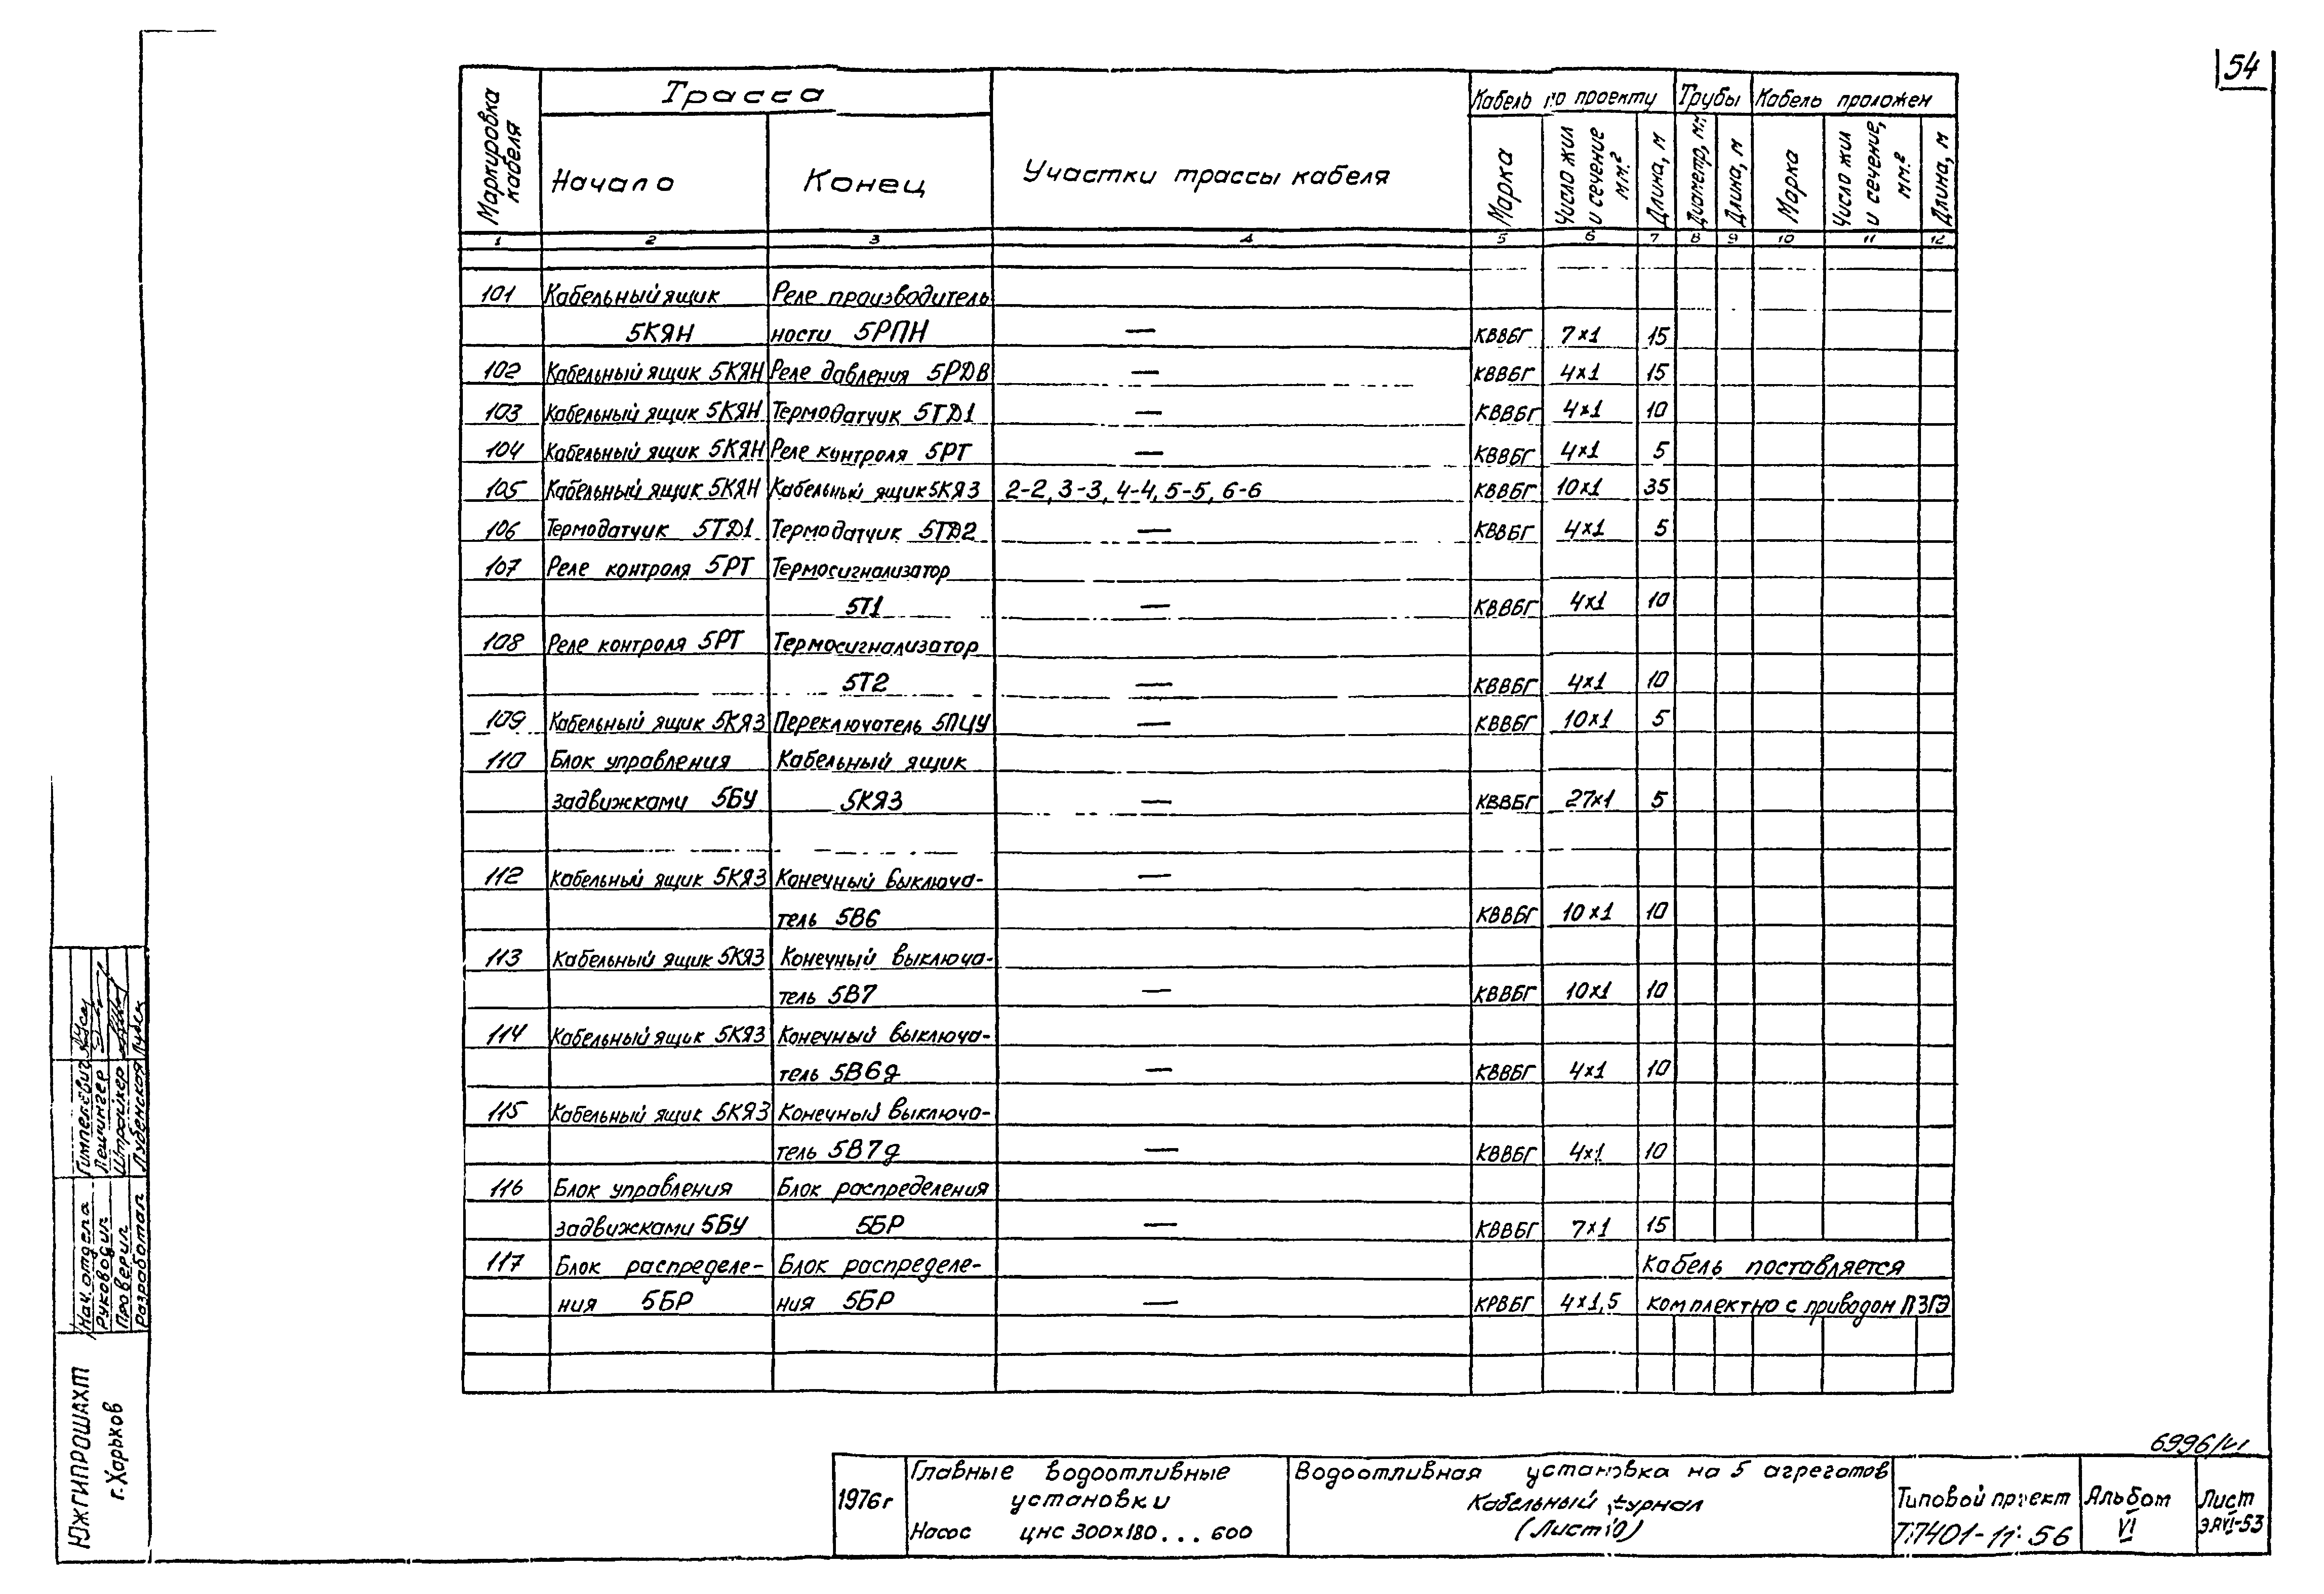 54
Маркировка кабеля
Трасса
Участки трассы кабеля
Кабель по проекту
Трубы
Кабель проложен
Начало
Конец
Марка
Число жил и сечение мм²
Длина, м
Диаметр, мм
Длина, м
Марка
Число жил и сечение, мм²
Длина, м
1 2 3 4 5 6 7 8 9 10 11 12
101 Кабельный ящик Реле производитель
5КЯН ности 5РПН — КВВБГ 7×1 15
102 Кабельный ящик 5КЯН Реле давления 5РДВ — КВВБГ 4×1 15
103 Кабельный ящик 5КЯН Термодатчик 5ТД1 — КВВБГ 4×1 10
104 Кабельный ящик 5КЯН Реле контроля 5РТ — КВВБГ 4×1 5
105 Кабельный ящик 5КЯН Кабельный ящик 5КЯЗ 2-2, 3-3, 4-4, 5-5, 6-6 КВВБГ 10×1 35
106 Термодатчик 5ТД1 Термодатчик 5ТД2 — КВВБГ 4×1 5
107 Реле контроля 5РТ Термосигнализатор
5Т1 — КВВБГ 4×1 10
108 Реле контроля 5РТ Термосигнализатор
5Т2 — КВВБГ 4×1 10
109 Кабельный ящик 5КЯЗ Переключатель 5ПЦУ — КВВБГ 10×1 5
110 Блок управления Кабельный ящик
задвижками 5БУ 5КЯЗ — КВВБГ 27×1 5
112 Кабельный ящик 5КЯЗ Конечный выключа- —
тель 5В6 КВВБГ 10×1 10
113 Кабельный ящик 5КЯЗ Конечный выключа-
тель 5В7 — КВВБГ 10×1 10
114 Кабельный ящик 5КЯЗ Конечный выключа-
тель 5В6д — КВВБГ 4×1 10
115 Кабельный ящик 5КЯЗ Конечный выключа-
тель 5В7д — КВВБГ 4×1 10
116 Блок управления Блок распределения
задвижками 5БУ 5БР — КВВБГ 7×1 15
117 Блок распределе- Блок распределе- Кабель поставляется
ния 5БР ния 5БР — КРВБГ 4×1,5 комплектно с приводом ПЗГЭ
Нач. отдела Гимпелевич
Руководил
Проверил Штрайхер
Разработал Лубенская
ЮЖГИПРОШАХТ
г. Харьков
6996/VI
1976г
Главные водоотливные
установки
Насос ЦНС 300×180...600
Водоотливная установка на 5 агрегатов
Кабельный журнал
(Лист 10)
Типовой проект
ТП401-11-56
Альбом
VI
Лист
ЭАVI-53